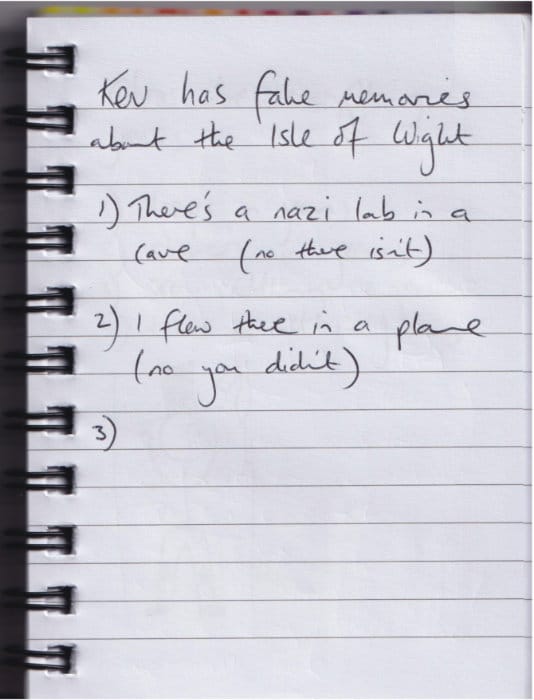 Kev has fake memories
about the Isle of Wight
1) There's a nazi lab in a
cave (no there isn't)
2) I flew there in a plane
(no you didn't)
3)